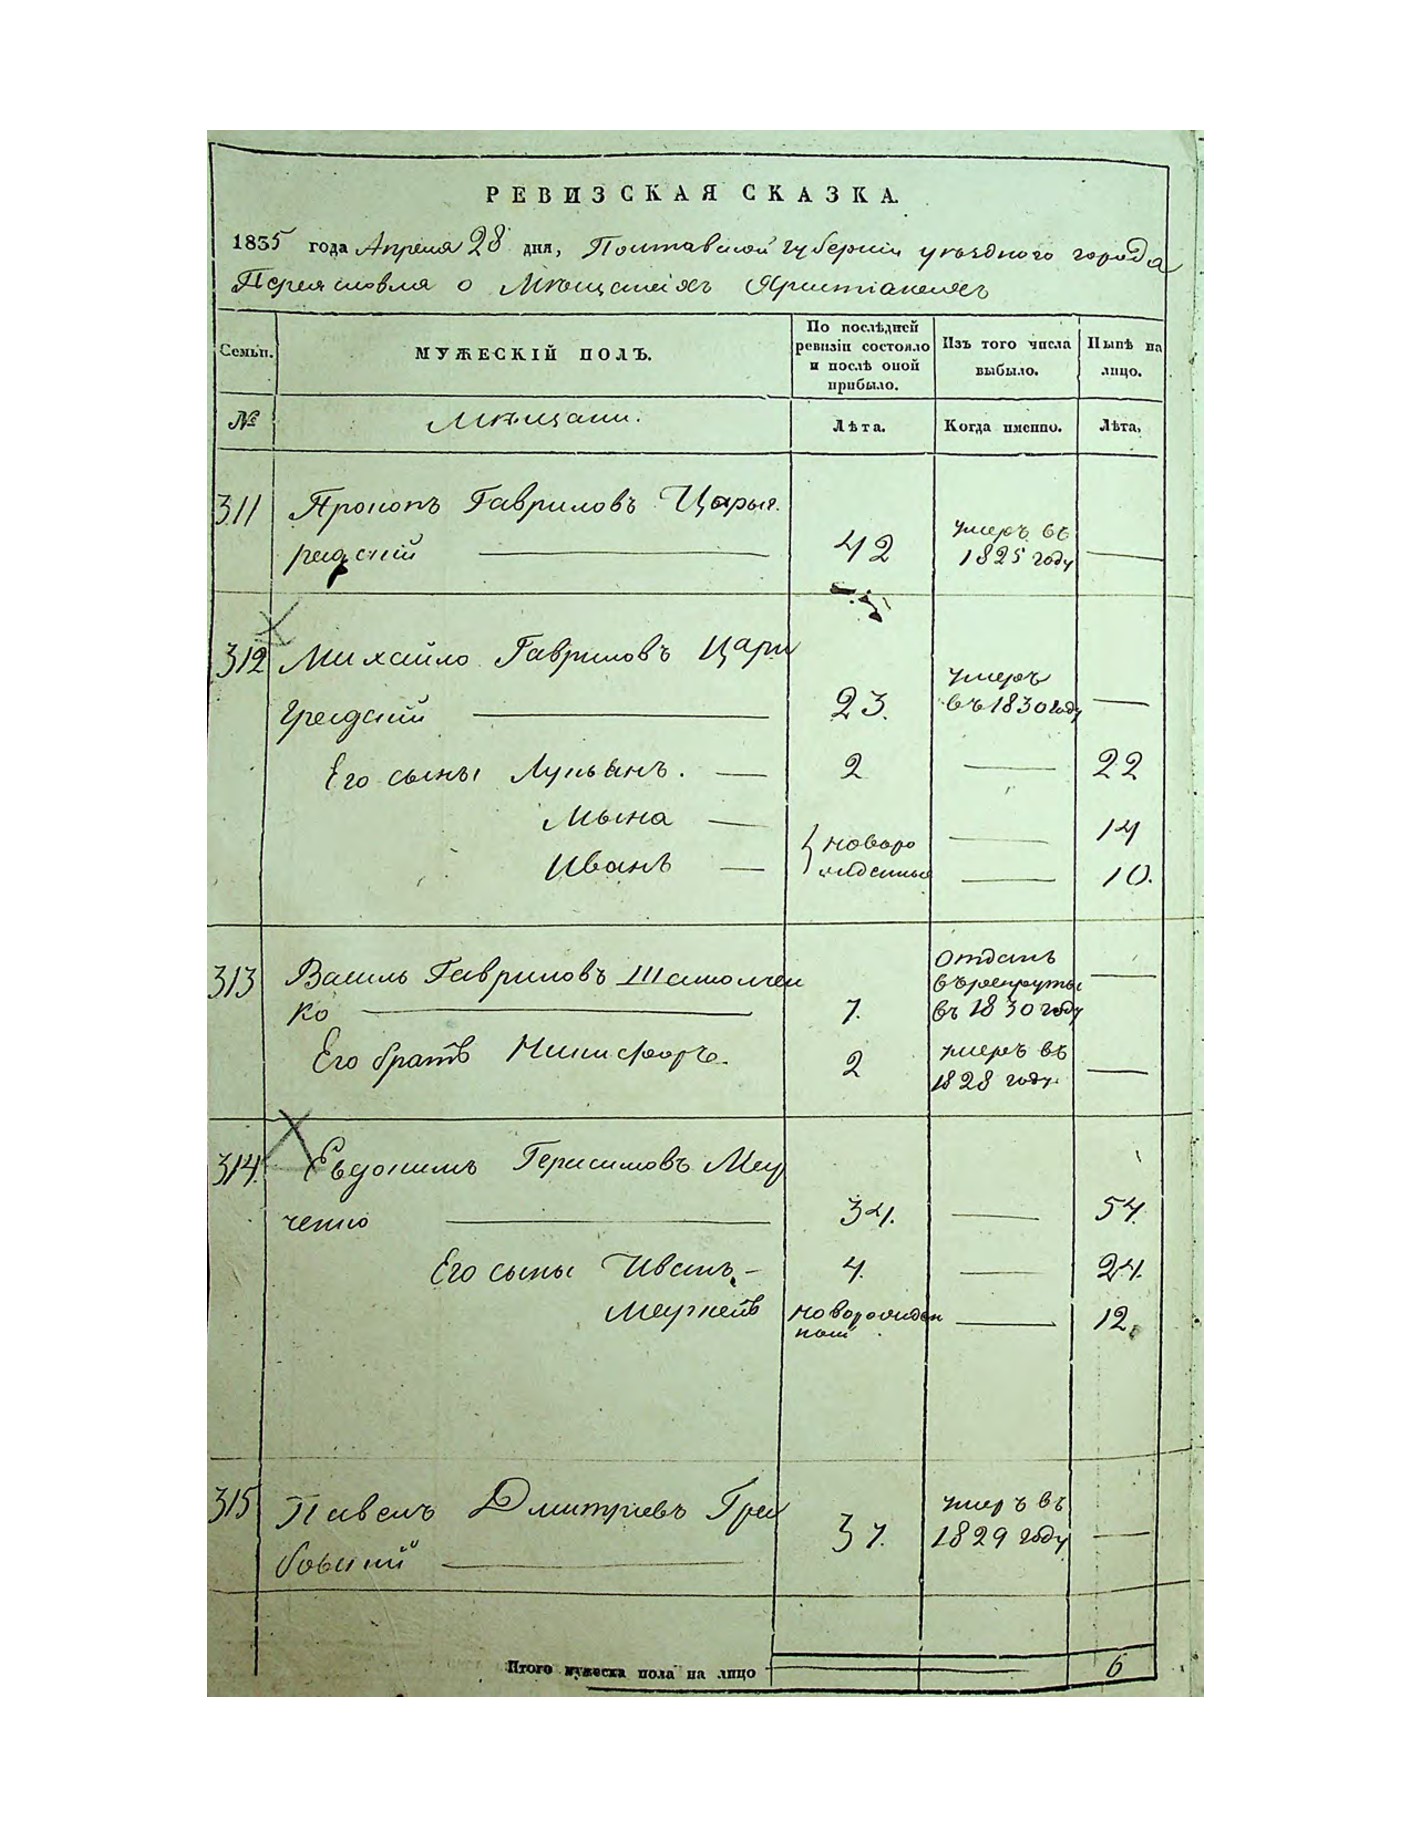 РЕВИЗСКАЯ СКАЗКА.
1835 года Апреля 28 дня, Полтавской губернии уѣзднаго города
Переяславля о Мѣщанахъ Христіанахъ
Семьи. МУЖЕСКІЙ ПОЛЪ. По послѣдней ревизіи состояло и послѣ оной прибыло. Изъ того числа выбыло. Нынѣ на лицо.
№ Мѣщани. Лѣта. Когда именно. Лѣта.
311 Прокопъ Гавриловъ Царыг
радский 42 умеръ въ 1825 году
312 Михайло Гавриловъ Цари
градский 23. умеръ въ 1830 году
Его сыны Лукьянъ. 2 22
Мына новоро 14
Иванъ жденные 10.
313 Василь Гавриловъ Шаполчен
ко 7. отданъ въ рекруты въ 1830 году
Его братъ Никифоръ. 2 умеръ въ 1828 году
314. Евдокимъ Герасимовъ
ченко 34. 54.
Его сыны Иванъ 4. 24.
новорожден
ный 12.
315 Павелъ Дмитріевъ Гра
бовский 37. умеръ въ 1829 году
Итого мужеска пола на лицо 6